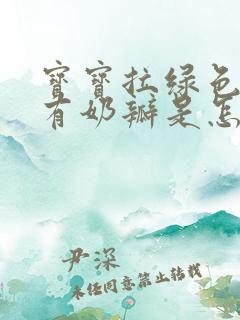 宝宝拉绿色
有奶瓣是怎
尹深
未经同意禁止转载